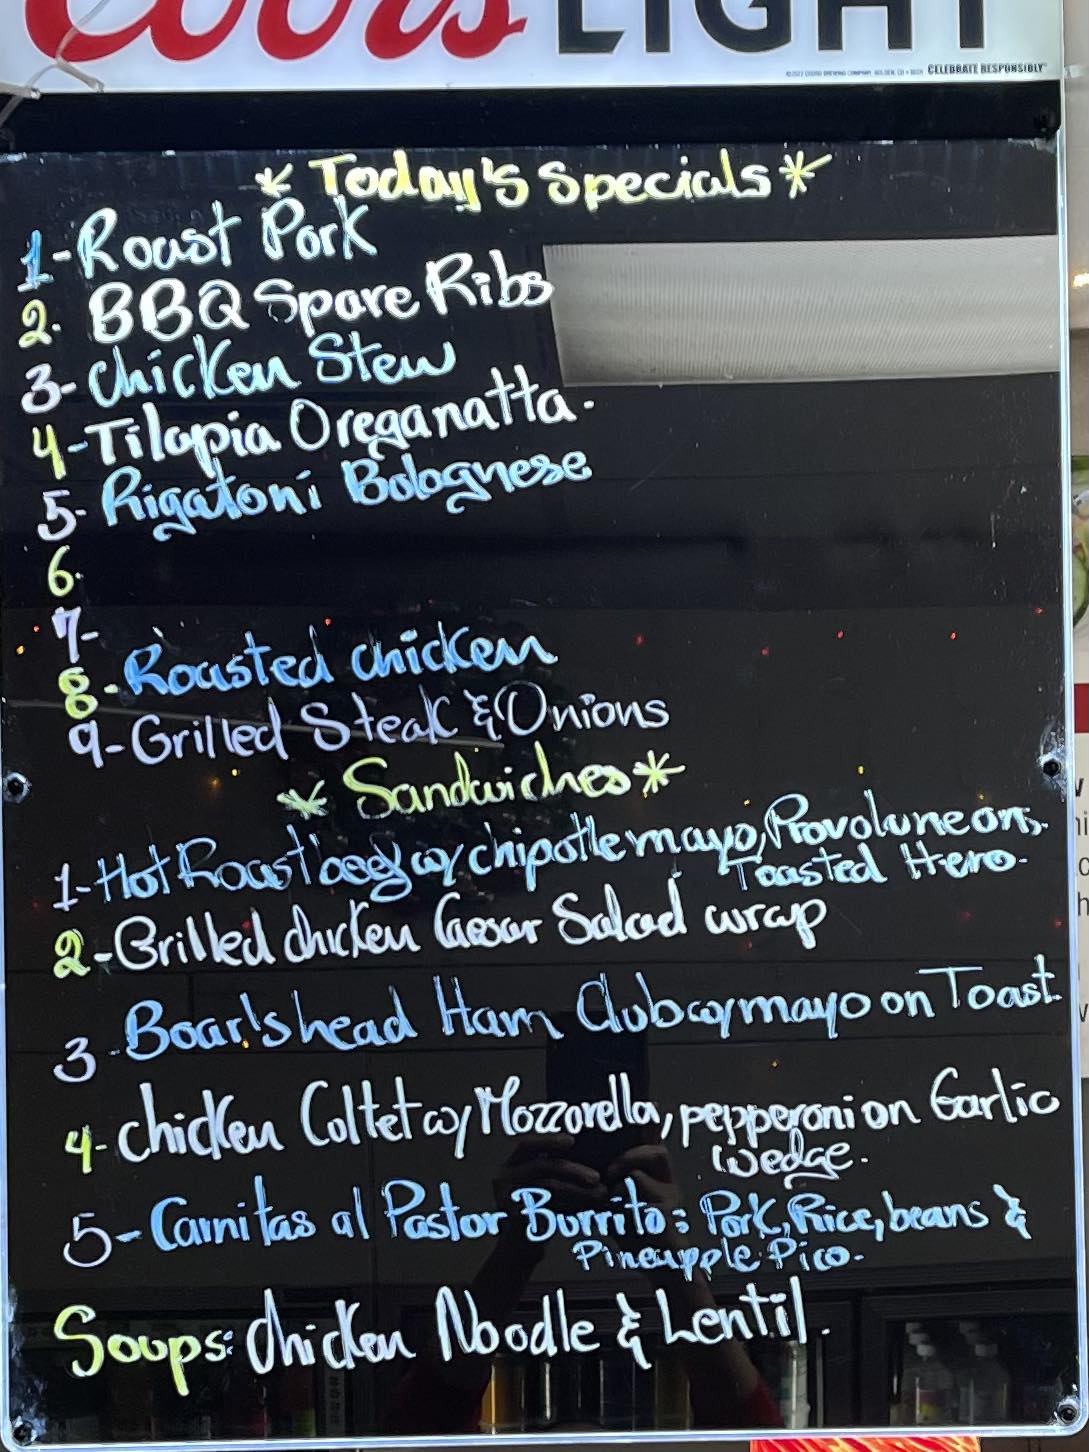 Coors LIGHT
CELEBRATE RESPONSIBLY
* Today's Specials *
1- Roast Pork
2. BBQ Spare Ribs
3- Chicken Stew
4- Tilapia Oreganatta.
5- Rigatoni Bolognese
6.
7-
8- Roasted chicken
9- Grilled Steak & Onions
* Sandwiches *
1- Hot Roast beef w/ chipotle mayo, Provolone on,
Toasted Hero-
2- Grilled chicken Caesar Salad wrap
3- Boar's head Ham Club w/ mayo on Toast.
4- chicken Coltet w/ Mozzorella, pepperoni on Garlic
wedge.
5- Carnitas al Pastor Burrito: Pork, Rice, beans &
Pineapple Pico-
Soups: chicken Noodle & Lentil.